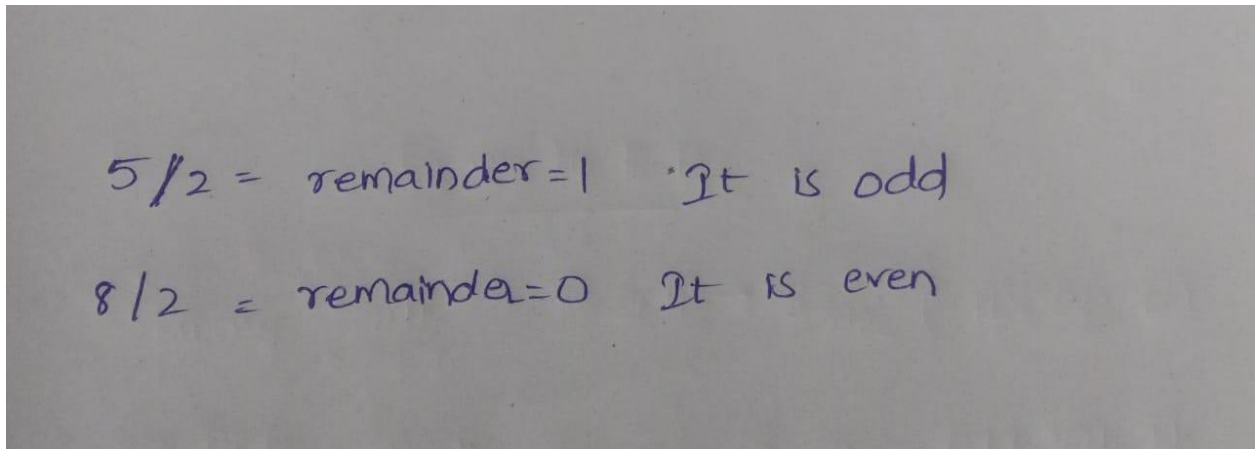 5/2 = remainder=1 It is odd
8/2 = remainder=0 It is even